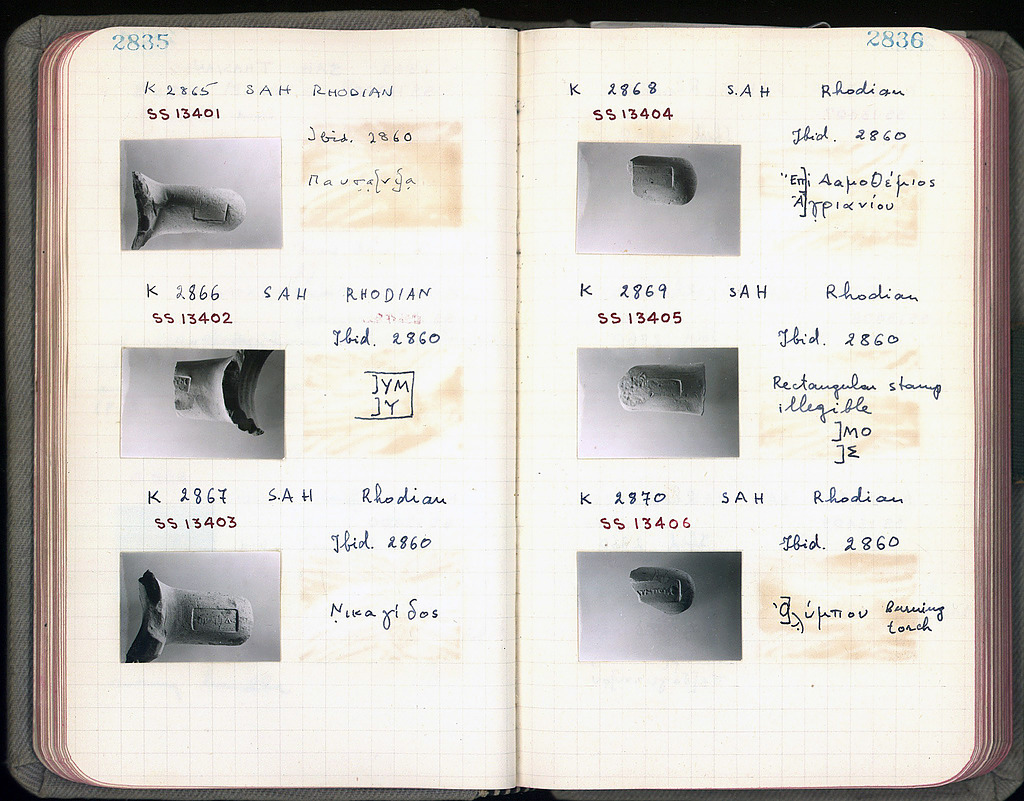 2835
K 2865 SAH RHODIAN
SS 13401
Ibid. 2860
K 2866 SAH RHODIAN
SS 13402
Ibid. 2860
]ΥΜ
]Υ
K 2867 S.A H Rhodian
SS 13403
Ibid. 2860
Νικαγίδος
2836
K 2868 S.A H Rhodian
SS 13404
Ibid. 2860
"Επ]ὶ Δαμοθέμιος
Ἀ]γριανίου
K 2869 SAH Rhodian
SS 13405
Ibid. 2860
Rectangular stamp
illegible
]ΜΟ
]Σ
K 2870 SAH Rhodian
SS 13406
Ibid. 2860
Ὀ]λύμπου Burning
torch